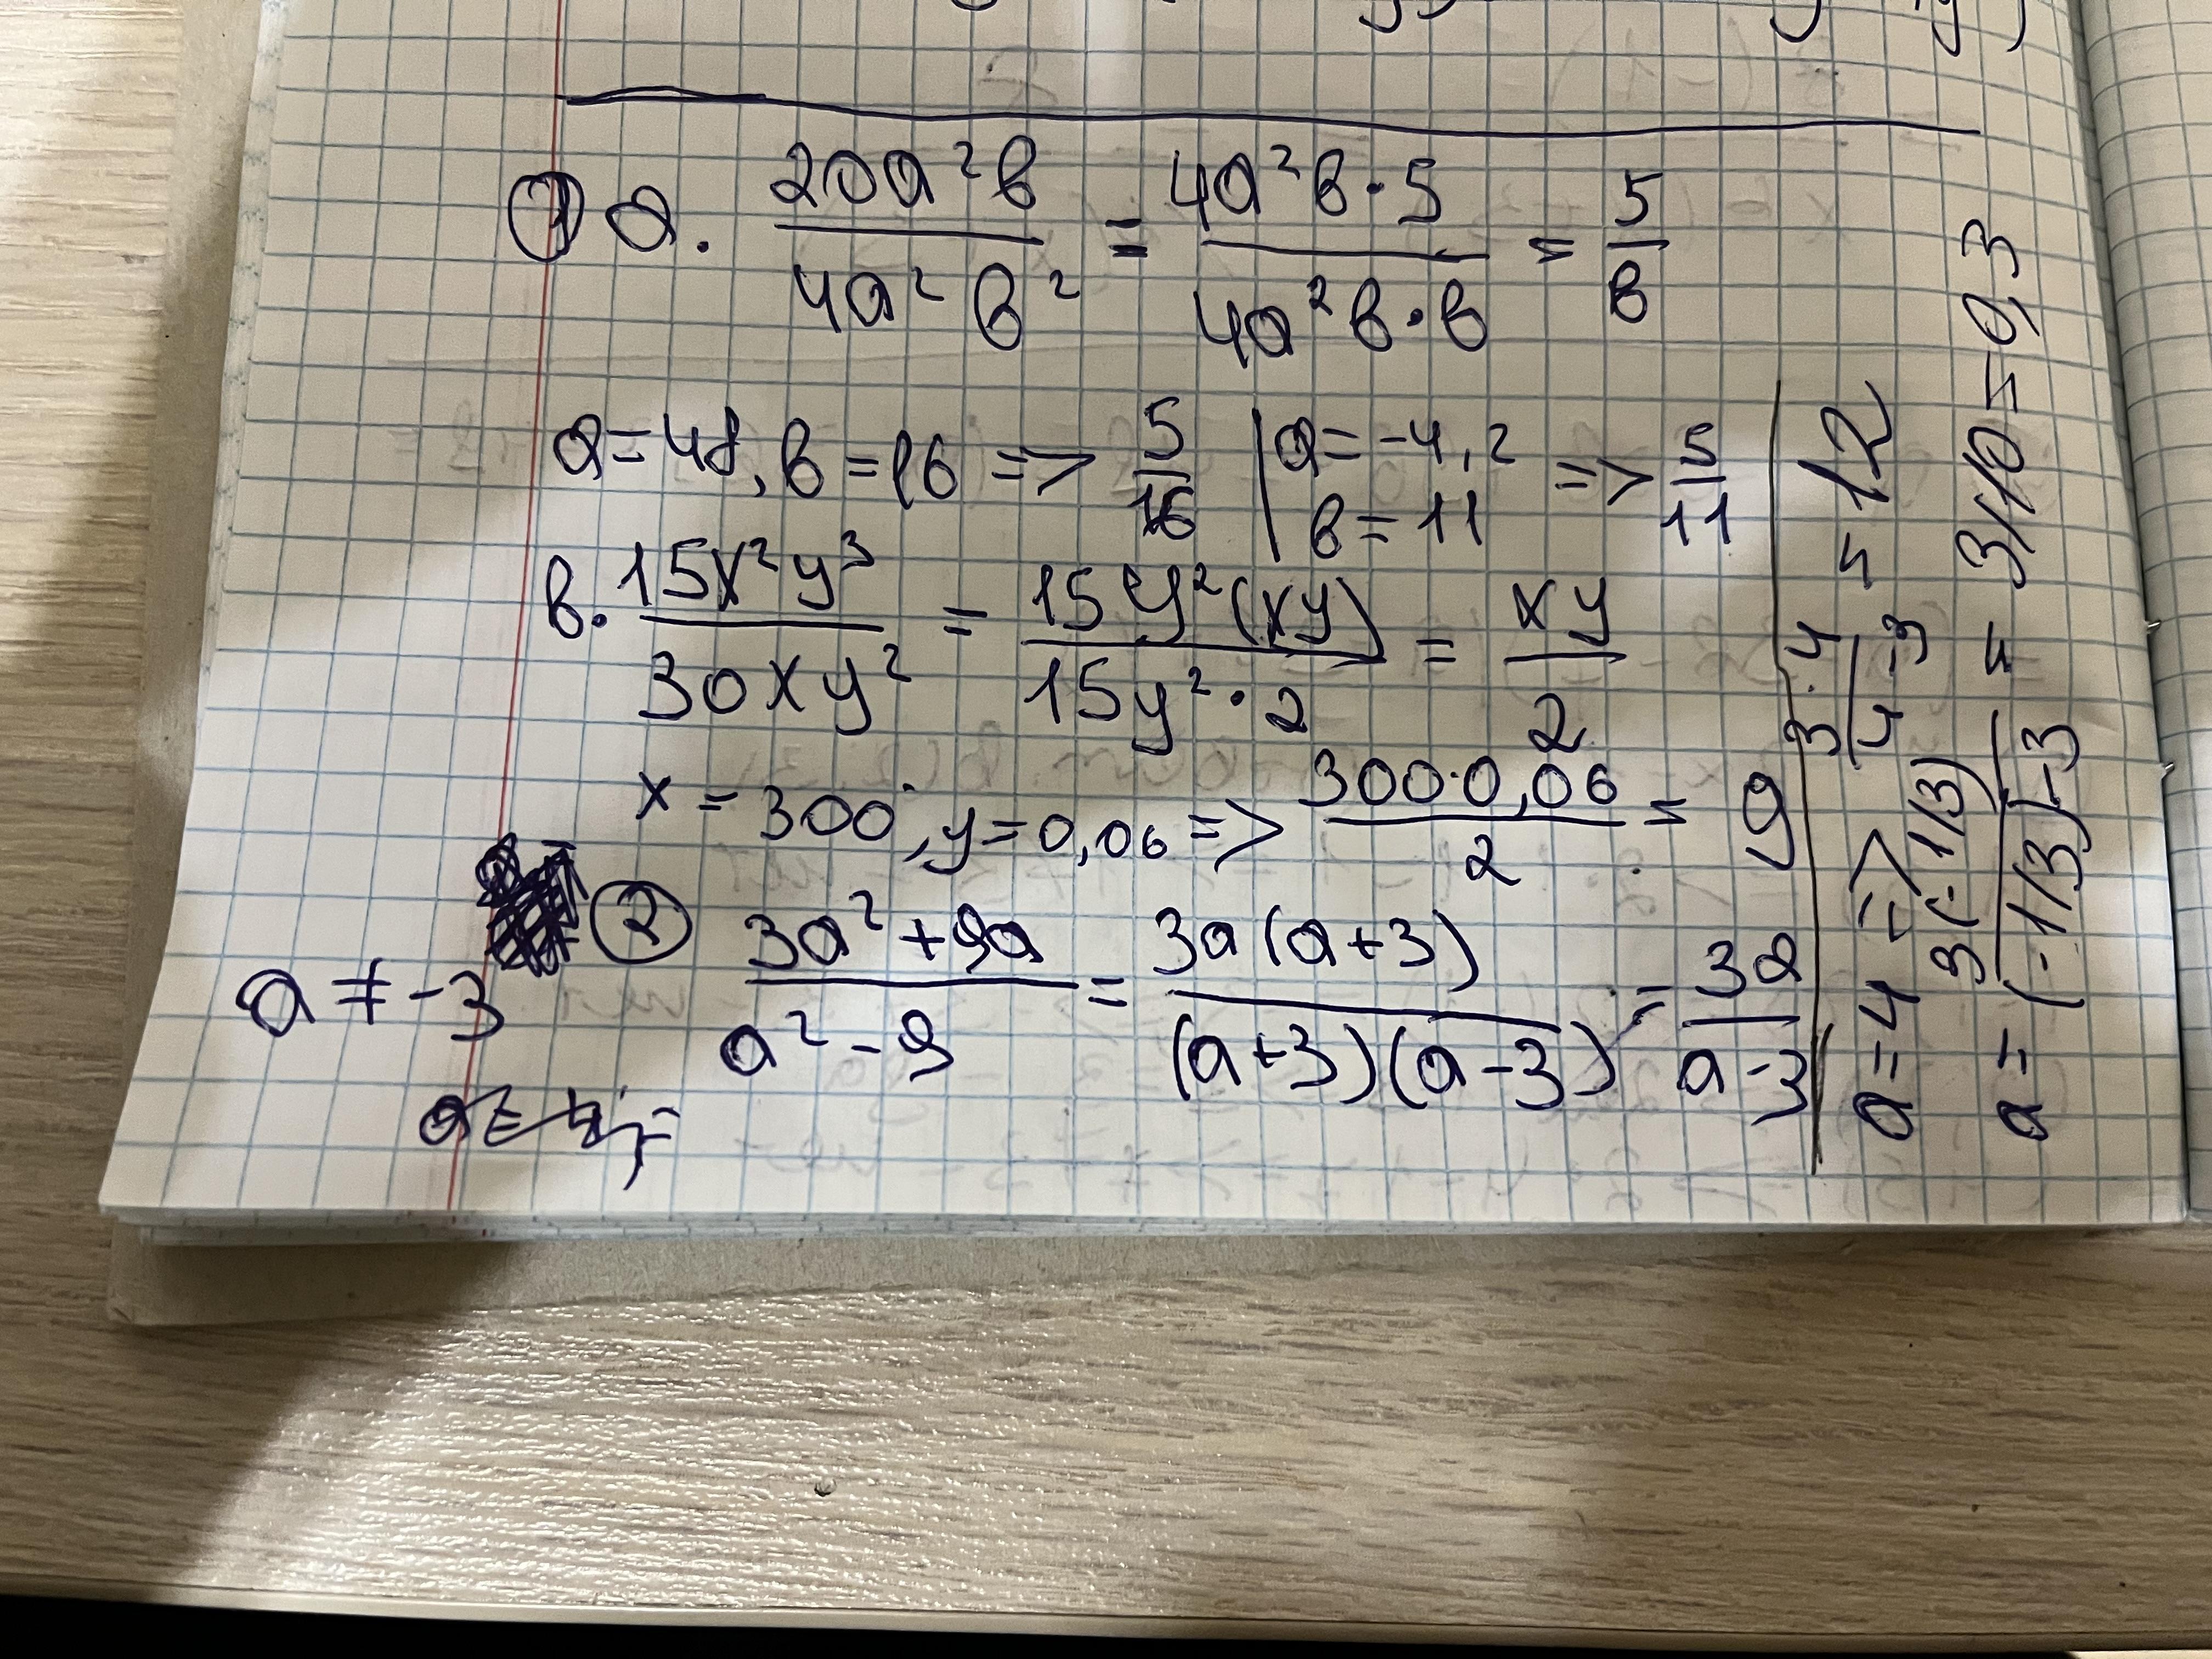 ① a. 20a²b / 4a²b² = 4a²b·5 / 4a²b·b = 5/b
a=48, b=16 => 5/16 | a=-4,2 b=11 => 5/11
b. 15x²y³ / 30xy² = 15y²(xy) / 15y²·2 = xy/2
x = 300, y=0,06 => 300·0,06 / 2 = 9
② 3a²+9a / a²-9 = 3a(a+3) / (a+3)(a-3) = 3a / a-3
a ≠ -3
a=4 => 3·4 / 4-3 = 12
a = 3(-1/3) / (-1/3)-3 = 3/10 = 0,3